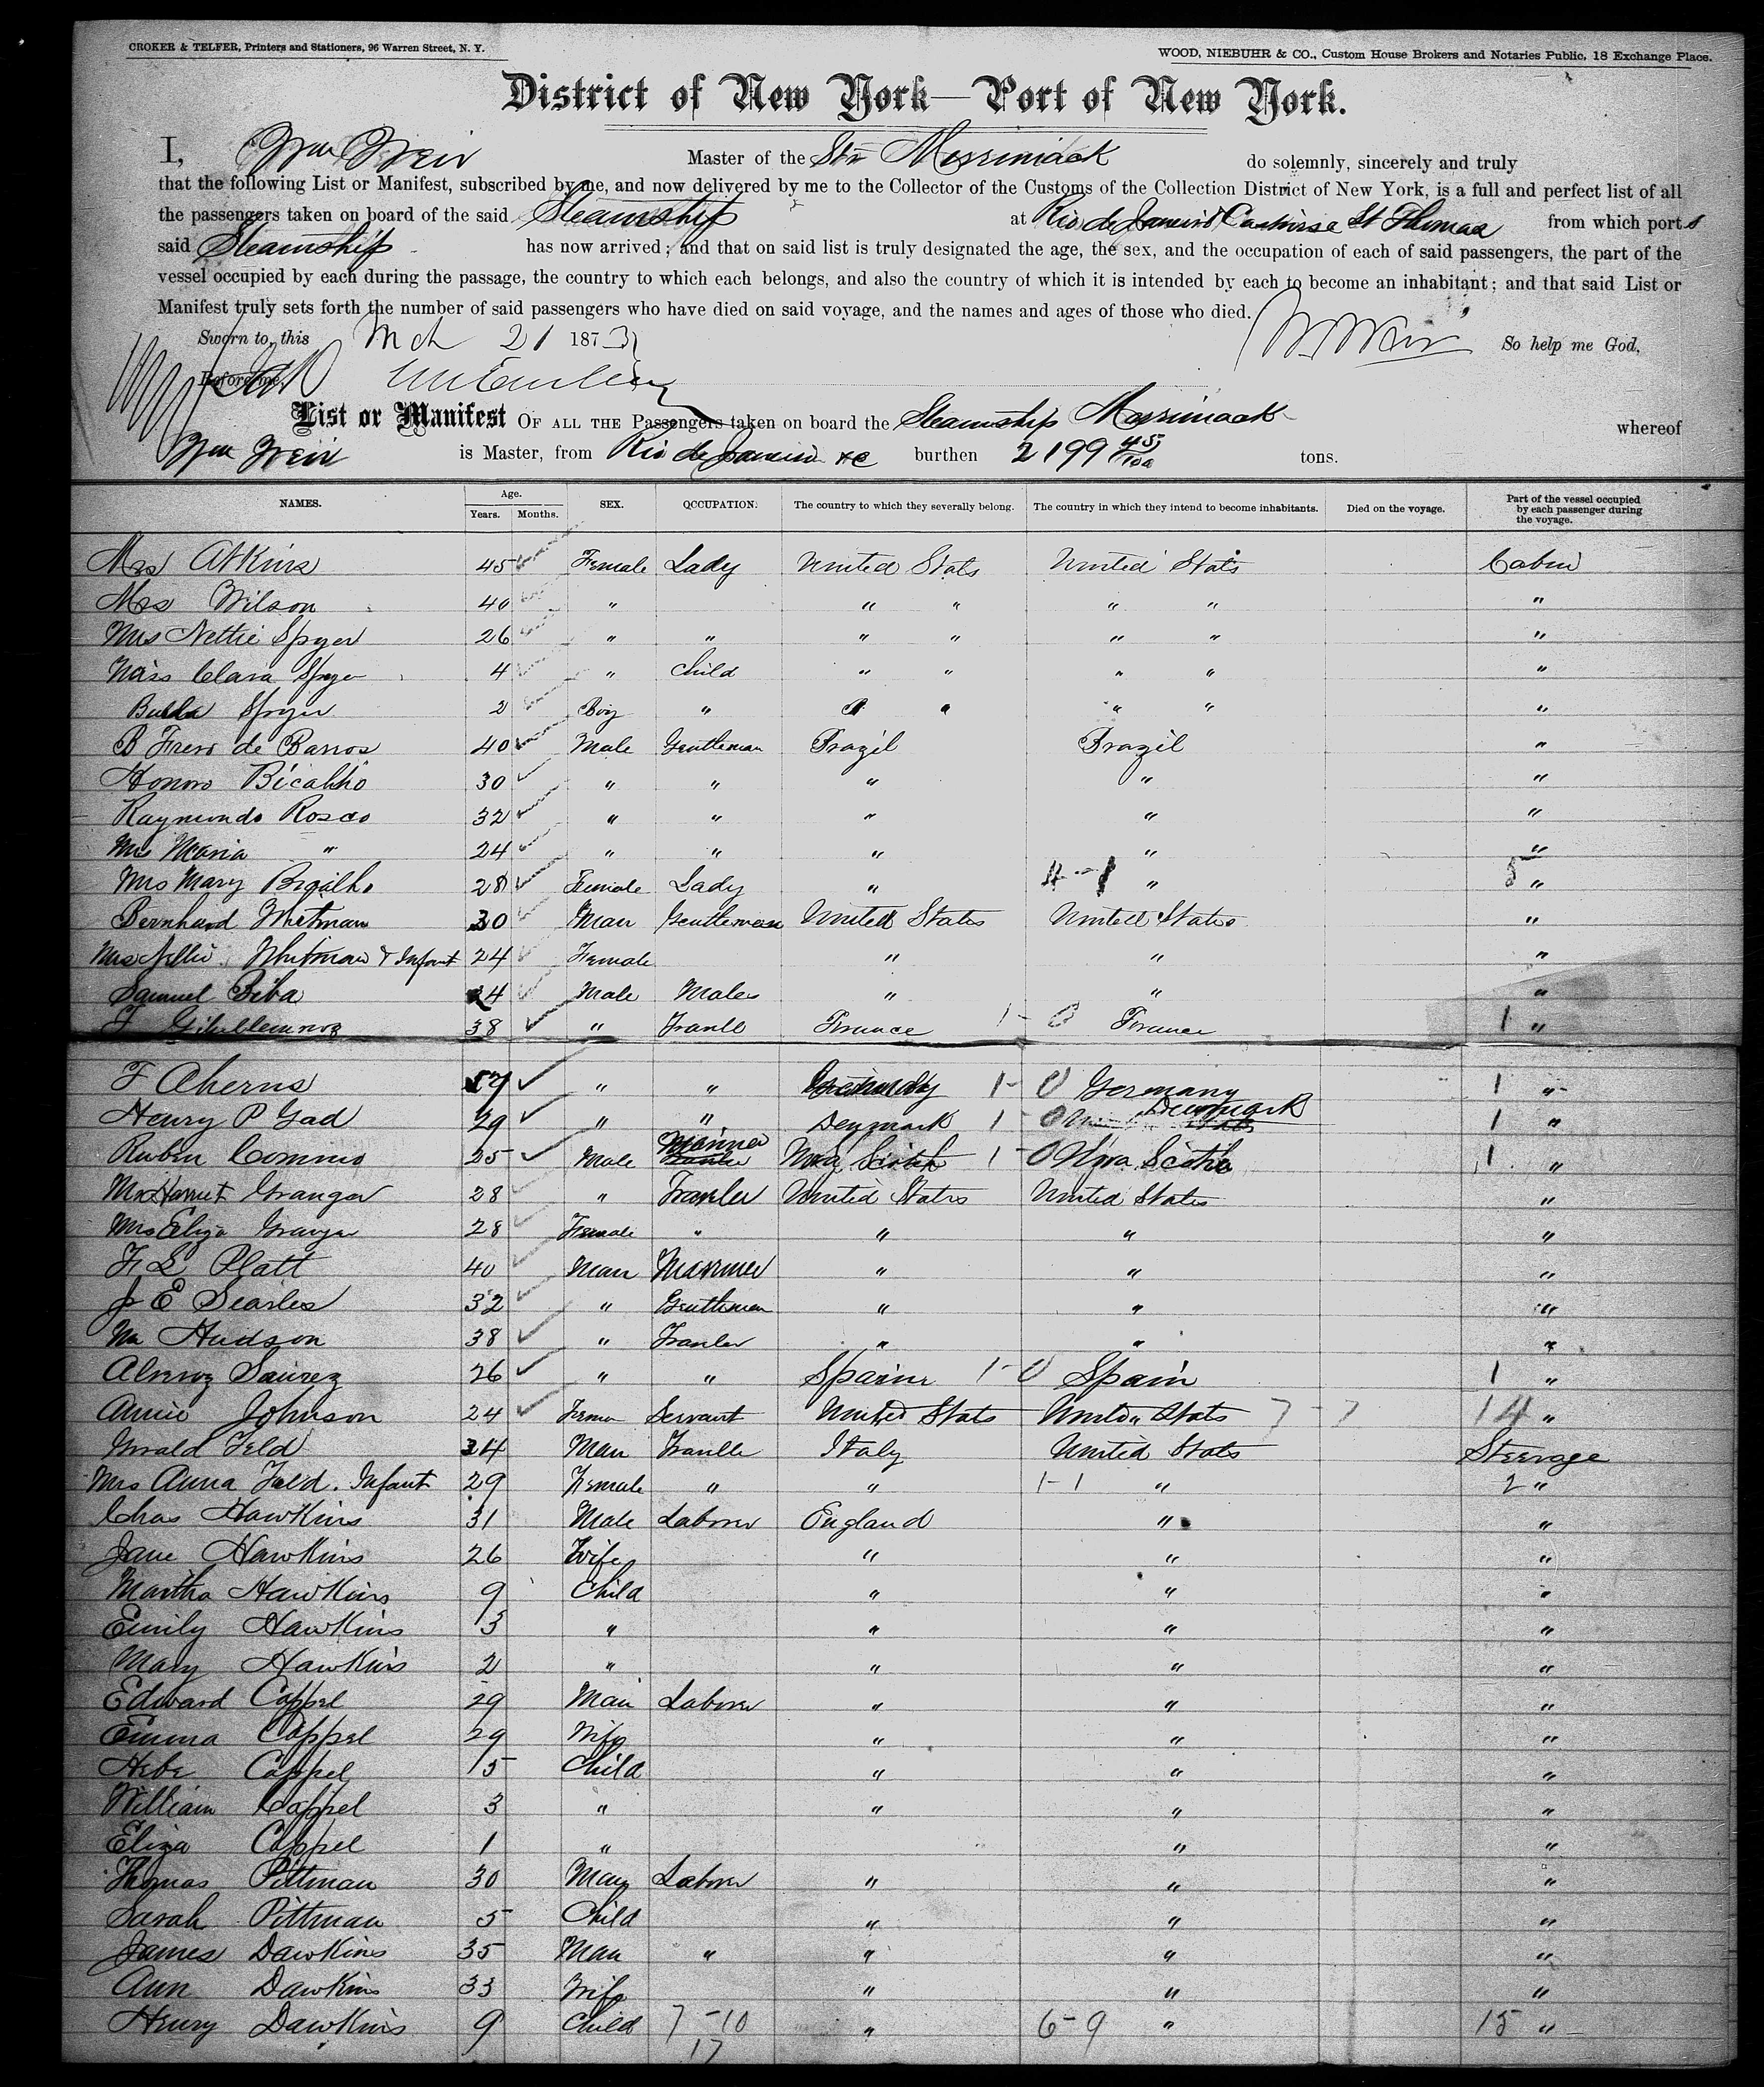 CROKER & TELFER, Printers and Stationers, 96 Warren Street, N. Y.
WOOD, NIEBUHR & CO., Custom House Brokers and Notaries Public, 18 Exchange Place.
District of New York—Port of New York.
I, Wm Weir Master of the Str Merrimack do solemnly, sincerely and truly
that the following List or Manifest, subscribed by me, and now delivered by me to the Collector of the Customs of the Collection District of New York, is a full and perfect list of all
the passengers taken on board of the said Steamship at Rio de Janeiro St Thomas from which ports
said Steamship has now arrived; and that on said list is truly designated the age, the sex, and the occupation of each of said passengers, the part of the
vessel occupied by each during the passage, the country to which each belongs, and also the country of which it is intended by each to become an inhabitant; and that said List or
Manifest truly sets forth the number of said passengers who have died on said voyage, and the names and ages of those who died.
Sworn to, this Mch 21 1873 W Weir So help me God,
Before me,
List or Manifest OF ALL THE Passengers taken on board the Steamship Merrimack whereof
Wm Weir is Master, from Rio de Janeiro &c burthen 2199 45/100 tons.
NAMES. Age. Years. Months. SEX. OCCUPATION. The country to which they severally belong. The country in which they intend to become inhabitants. Died on the voyage. Part of the vessel occupied by each passenger during the voyage.
Mrs Atkins 45 Female Lady United Stats United Stats Cabin
Mrs Wilson 40 " " " " " "
Mrs Nettie Spyer 26 " " " " " " "
Miss Clara Spyer 4 " Child " " " " "
Spyer 2 Boy " " " " " "
B de Barros 40 Male Gentleman Brazil Brazil "
Honoro Bicalho 30 " " " " "
Raymundo Rosco 32 " " " " "
Mrs Maria " 24 " " " " "
Mrs Mary 28 Female Lady " " 5 "
Bernhard Whitman 30 Man Gentleman United States United States "
Mrs Nellie Whitman & Infant 24 Female " " "
Samuel Biba 24 Male Males " " "
F 38 " France 1 - 0 France 1 "
F Aherns " " Germany 1 - 0 Germany 1 "
Henry P Gad 29 " " Denmark 1 0 Denmark 1 "
Rubin 25 Male Mariner Nova Scotia 1 - 0 Nova Scotia 1 "
Granger 28 " United States United States "
Mrs Eliza Granger 28 Female " " " "
F L Platt 40 Man Marriner " " "
J E Searles 32 " Gentleman " " "
Mr Hudson 38 " " " "
Alveroz Saurez 26 " " Spain 1 - 0 Spain 1 "
Annie Johnson 24 Servant United Stats United Stats 7 - 7 14 "
Feld 34 Man Italy United Stats Steerage
Mrs Anna Feld. Infant 29 Female " " 1 - 1 " 2 "
Chas Hawkins 31 Male Laborer England " "
Jane Hawkins 26 Wife " " "
Martha Hawkins 9 Child " " "
Emily Hawkins 3 " " " "
Mary Hawkins 2 " " " "
Edward Cappel 29 Man Laborer " " "
Emma Cappel 29 Wife " " "
Hebe Cappel 5 Child " " "
William Cappel 3 " " " "
Eliza Cappel 1 " " "
Thomas Pittman 30 Man Laborer " " "
Sarah Pittman 5 Child " " "
James Dawkins 35 Man " " " "
Ann Dawkins 33 Wife " " "
Henry Dawkins 9 Child 7 - 10 " 6 - 9 " 15 "
17